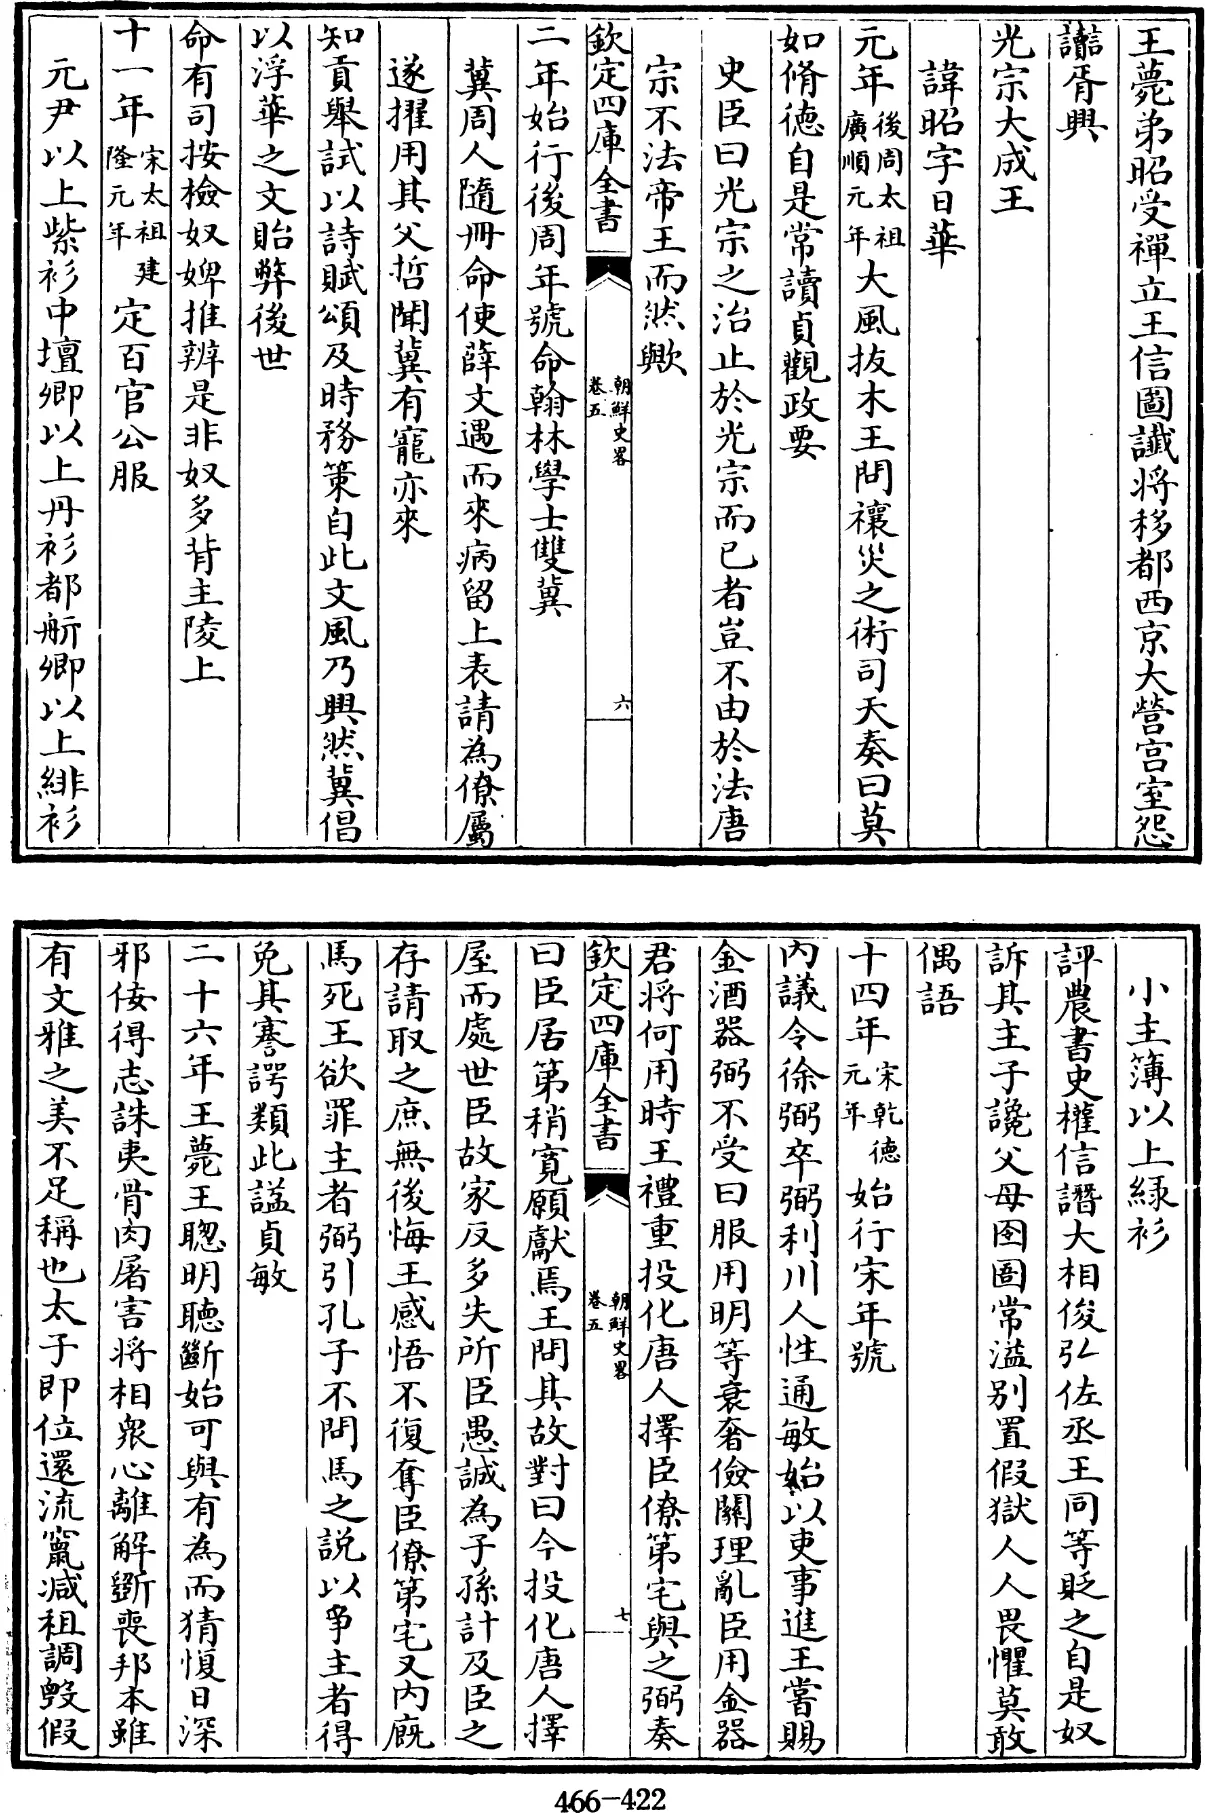 王薨弟昭受禪立王信圖讖將移都西京大營宫室怨
讟胥興
光宗大成王
諱昭字日華
元年後周太祖廣順元年大風抜木王問禳災之術司天奏曰莫
如脩徳自是常讀貞觀政要
史臣曰光宗之治止於光宗而已者豈不由於法唐
宗不法帝王而然歟
欽定四庫全書
朝鮮史畧
卷五
六
二年始行後周年號命翰林學士雙冀
冀周人隨冊命使薛文遇而來病留上表請為僚屬
遂擢用其父哲聞冀有寵亦來
知貢舉試以詩賦頌及時務策自此文風乃興然冀倡
以浮華之文貽弊後世
命有司按檢奴婢推辨是非奴多背主陵上
十一年宋太祖建隆元年定百官公服
元尹以上紫衫中壇卿以上丹衫都航卿以上緋衫
小主簿以上緑衫
評農書史權信譖大相俊弘佐丞王同等貶之自是奴
訴其主子讒父母囹圄常溢别置假獄人人畏懼莫敢
偶語
十四年宋乾德元年始行宋年號
内議令徐弼卒弼利川人性通敏始以吏事進王嘗賜
金酒器弼不受曰服用明等衰奢儉關理亂臣用金器
君将何用時王禮重投化唐人擇臣僚第宅與之弼奏
欽定四庫全書
朝鮮史畧
卷五
七
曰臣居第稍寛願獻焉王問其故對曰今投化唐人擇
屋而處世臣故家反多失所臣愚誠為子孫計及臣之
存請取之庶無後悔王感悟不復奪臣僚第宅又内廐
馬死王欲罪主者弼引孔子不問馬之説以爭主者得
免其謇諤類此諡貞敏
二十六年王薨王聰明聽斷始可與有為而猜愎日深
邪佞得志誅夷骨肉屠害將相衆心離解斵喪邦本雖
有文雅之美不足稱也太子即位還流竄减租調毁假
466-422